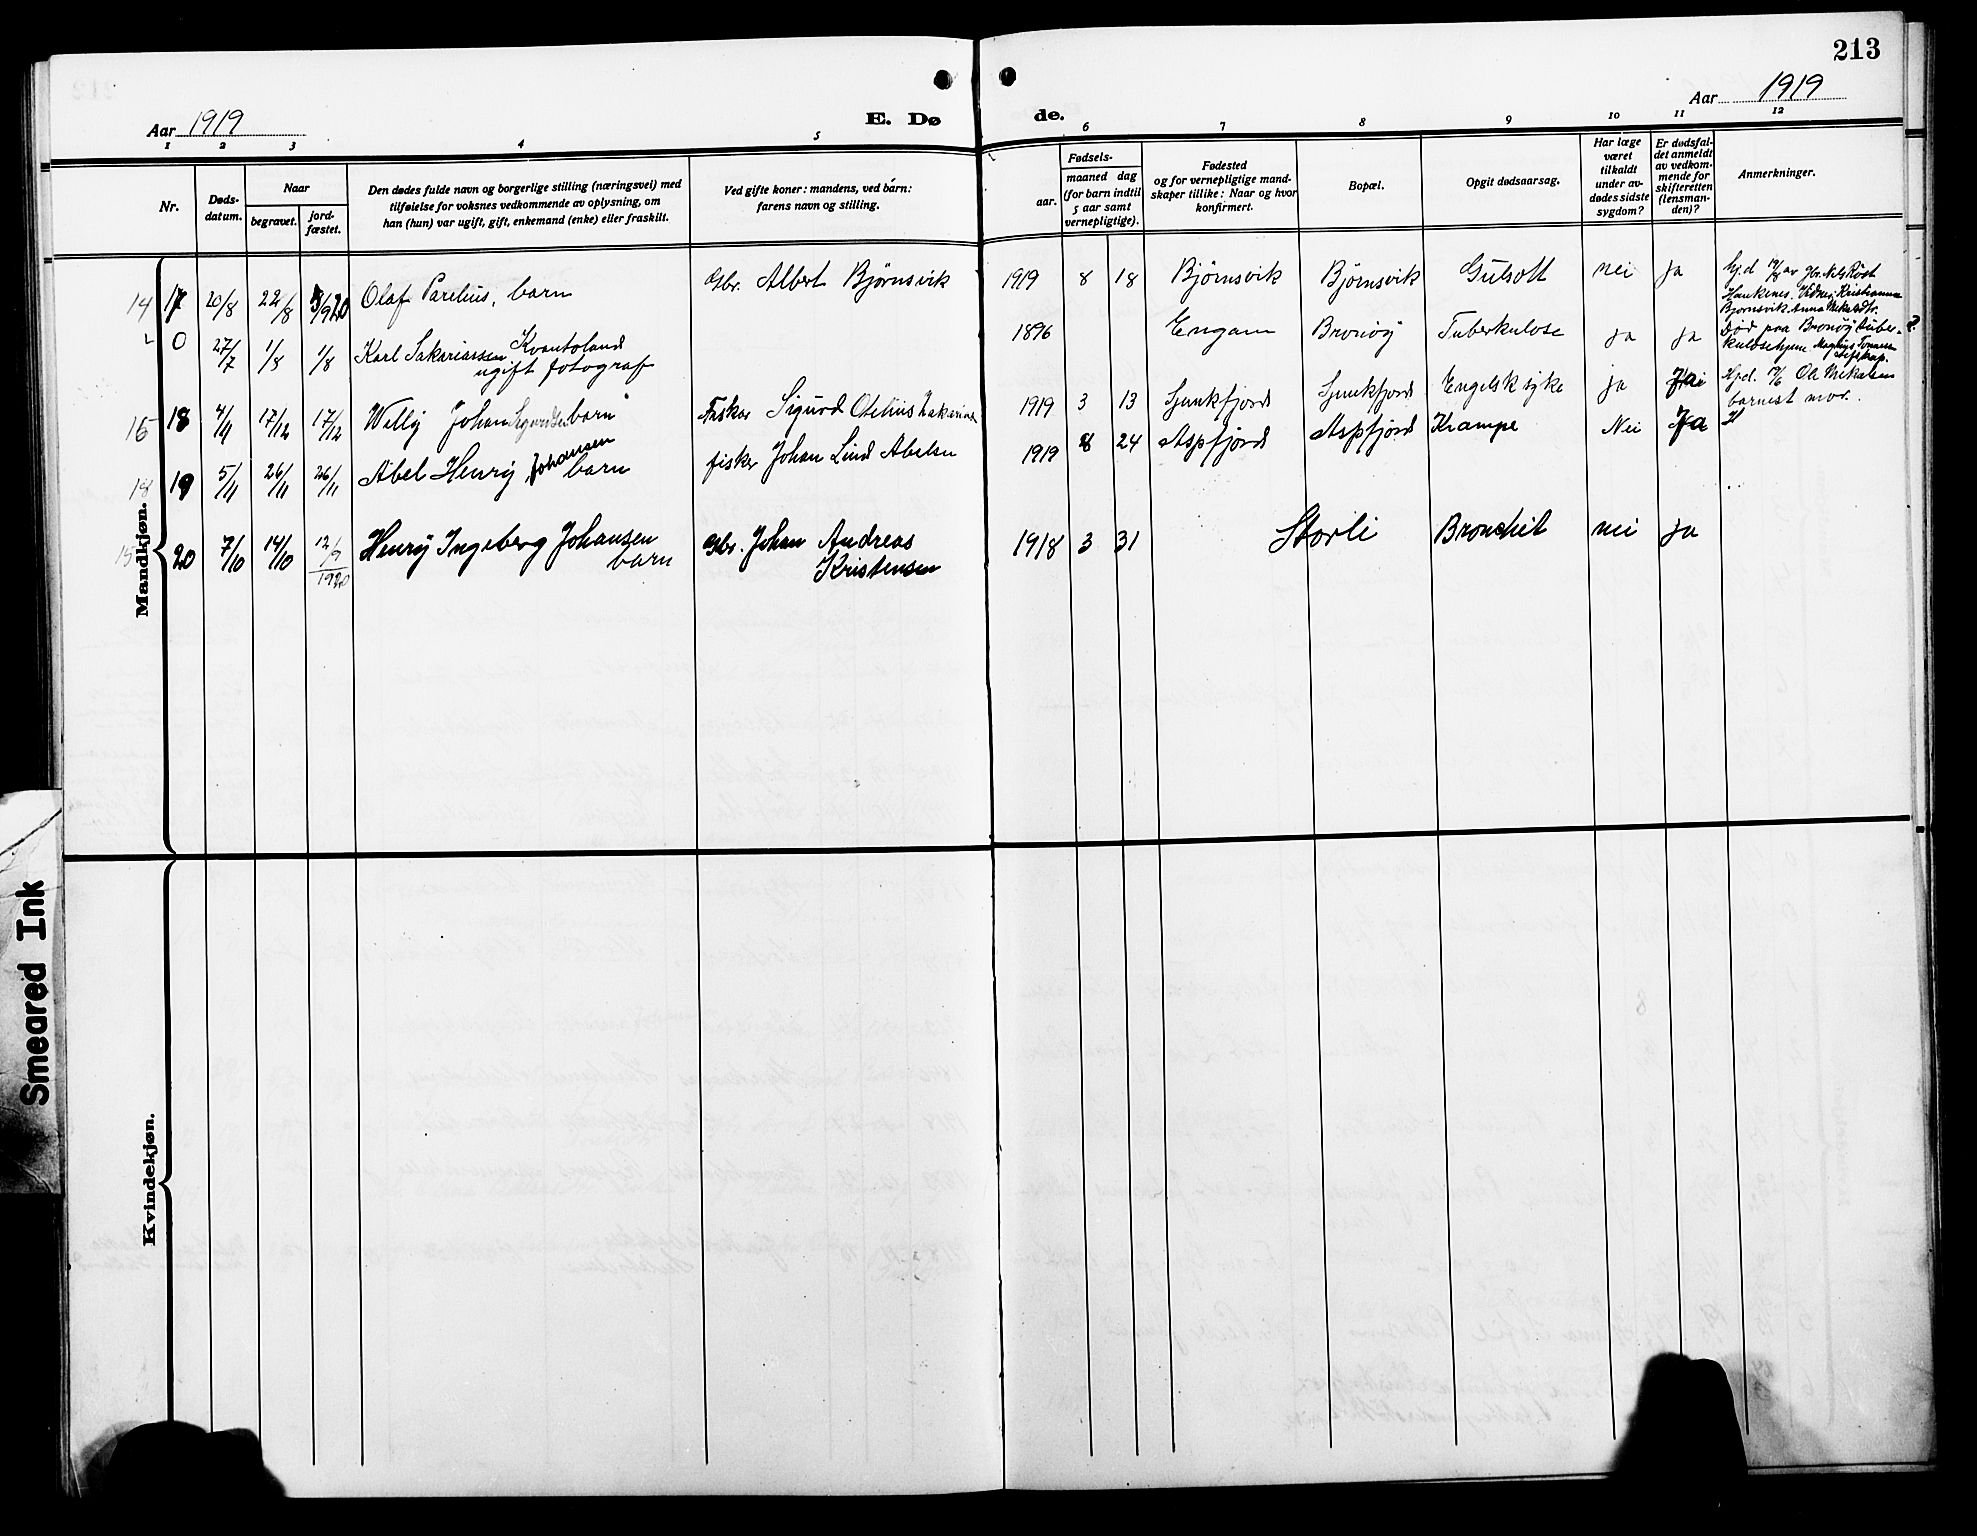 213
Aar 1919
E. Dø
de.
Aar 1919
1 2 3 4 5 6 7 8 9 10 11 12
Nr.
Døds-
datum.
Naar
begravet.
jord-
fæstet.
Den dødes fulde navn og borgerlige stilling (næringsvei) med
tilføielse for voksnes vedkommende av oplysning, om
han (hun) var ugift, gift, enkemand (enke) eller fraskilt.
Ved gifte koner: mandens, ved bårn:
farens navn og stilling.
Fødsels-
aar.
maaned dag
(for barn indtil
5 aar samt
vernepligtige).
Fødested
og for vernepligtige mand-
skaper tillike: Naar og hvor
konfirmert.
Bopæl.
Opgit dødsaarsag.
Har læge
været
tilkaldt
under av-
dødes sidste
sygdom?
Er dødsfal-
det anmeldt
av vedkom-
mende for
skifteretten
(lensman-
den)?
Anmerkninger.
14 17 20/8 22/8 5/9 20 Olaf Parelius, barn Gbr. Albert Bjørnsvik 1919 8 18 Bjørnsvik Bjørnsvik Gulsott nei ja hj.d 19/8 av gbr. Nels Röst
Haukenes. Vidner: Kristianna
Bjørnsvik. Anna Mikalsdtr.
0 27/7 1/8 1/8 Karl Sakariassen Kvantoland
ugift fotograf 1896 Engam Bronøy Tuberkulose ja ja Død paa Brønøy tuber-
kulosehjem.
15 18 4/11 17/12 17/12 Willy Johan Sigurdsen barn Fisker Sigurd Otelius Zakariasen 1919 3 13 Sjunkfjord Sjunkfjord Engelsk syke ja Ja Hjd. Ole Mikalsen
barnest mor.
18 19 5/11 26/11 26/11 Abel Henry, Johansen
barn fisker Johan Lind Abelsen 1919 8 24 Aspfjord Aspfjord Krampe Nei Ja
20 7/10 14/10 12/9 1920 Henry Ingeberg Johansen
barn Gbr. Johan Andreas
Kristensen 1918 3 31 Storli Bronchit nei ja
Mandkjøn.
Kvindekjøn.
Smeared Ink